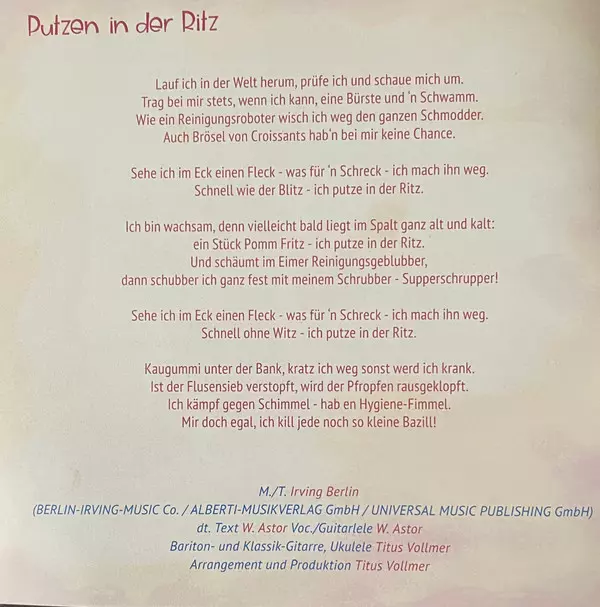 Putzen in der Ritz
Lauf ich in der Welt herum, prüfe ich und schaue mich um.
Trag bei mir stets, wenn ich kann, eine Bürste und 'n Schwamm.
Wie ein Reinigungsroboter wisch ich weg den ganzen Schmodder.
Auch Brösel von Croissants hab'n bei mir keine Chance.
Sehe ich im Eck einen Fleck - was für 'n Schreck - ich mach ihn weg.
Schnell wie der Blitz - ich putze in der Ritz.
Ich bin wachsam, denn vielleicht bald liegt im Spalt ganz alt und kalt:
ein Stück Pomm Fritz - ich putze in der Ritz.
Und schäumt im Eimer Reinigungsgeblubber,
dann schubber ich ganz fest mit meinem Schrubber - Supperschrupper!
Sehe ich im Eck einen Fleck - was für 'n Schreck - ich mach ihn weg.
Schnell ohne Witz - ich putze in der Ritz.
Kaugummi unter der Bank, kratz ich weg sonst werd ich krank.
Ist der Flusensieb verstopft, wird der Pfropfen rausgeklopft.
Ich kämpf gegen Schimmel - hab en Hygiene-Fimmel.
Mir doch egal, ich kill jede noch so kleine Bazill!
M./T. Irving Berlin
(BERLIN-IRVING-MUSIC Co. / ALBERTI-MUSIKVERLAG GmbH / UNIVERSAL MUSIC PUBLISHING GmbH)
dt. Text W. Astor Voc./Guitarlele W. Astor
Bariton- und Klassik-Gitarre, Ukulele Titus Vollmer
Arrangement und Produktion Titus Vollmer